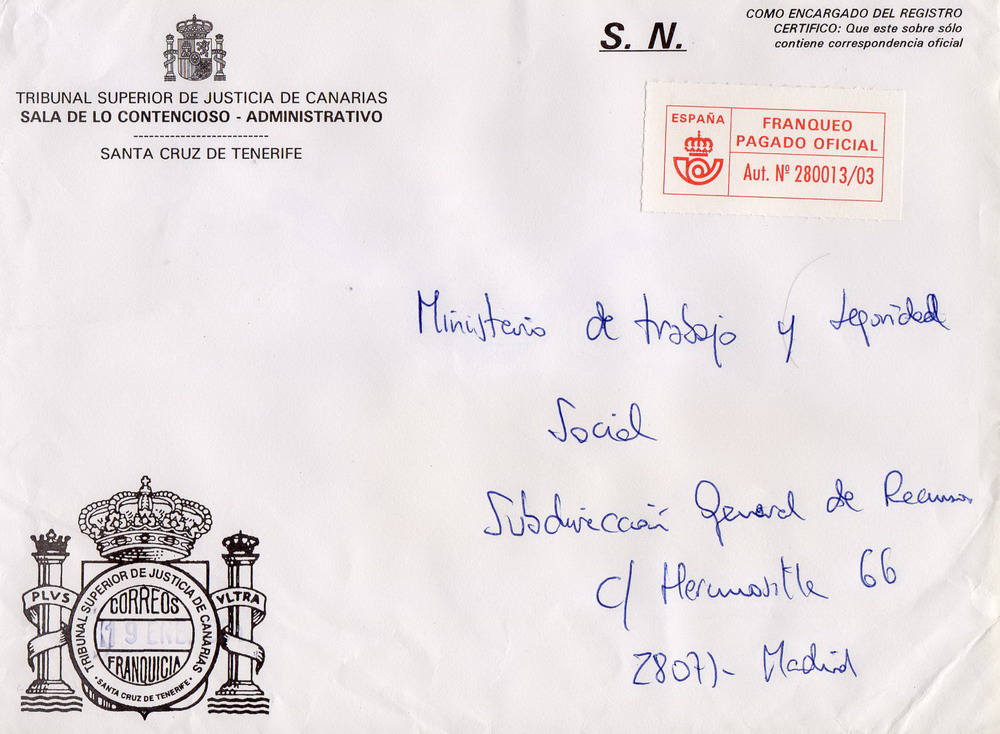 TRIBUNAL SUPERIOR DE JUSTICIA DE CANARIAS
SALA DE LO CONTENCIOSO - ADMINISTRATIVO
SANTA CRUZ DE TENERIFE
S. N.
COMO ENCARGADO DEL REGISTRO
CERTIFICO: Que este sobre sólo
contiene correspondencia oficial
ESPAÑA
FRANQUEO
PAGADO OFICIAL
Aut. Nº 280013/03
Ministerio de trabajo y seguridad
Social
Subdirección General de Recursos
c/ Hermosilla 66
28071- Madrid
PLVS VLTRA
TRIBUNAL SUPERIOR DE JUSTICIA DE CANARIAS
CORREOS
19 ENE.
FRANQUICIA
· SANTA CRUZ DE TENERIFE ·